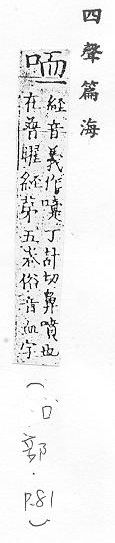 四聲篇海
哂
經音義作嚏丁計切鼻噴也
在普曜經第五卷俗音血字
(口部.
P.81)